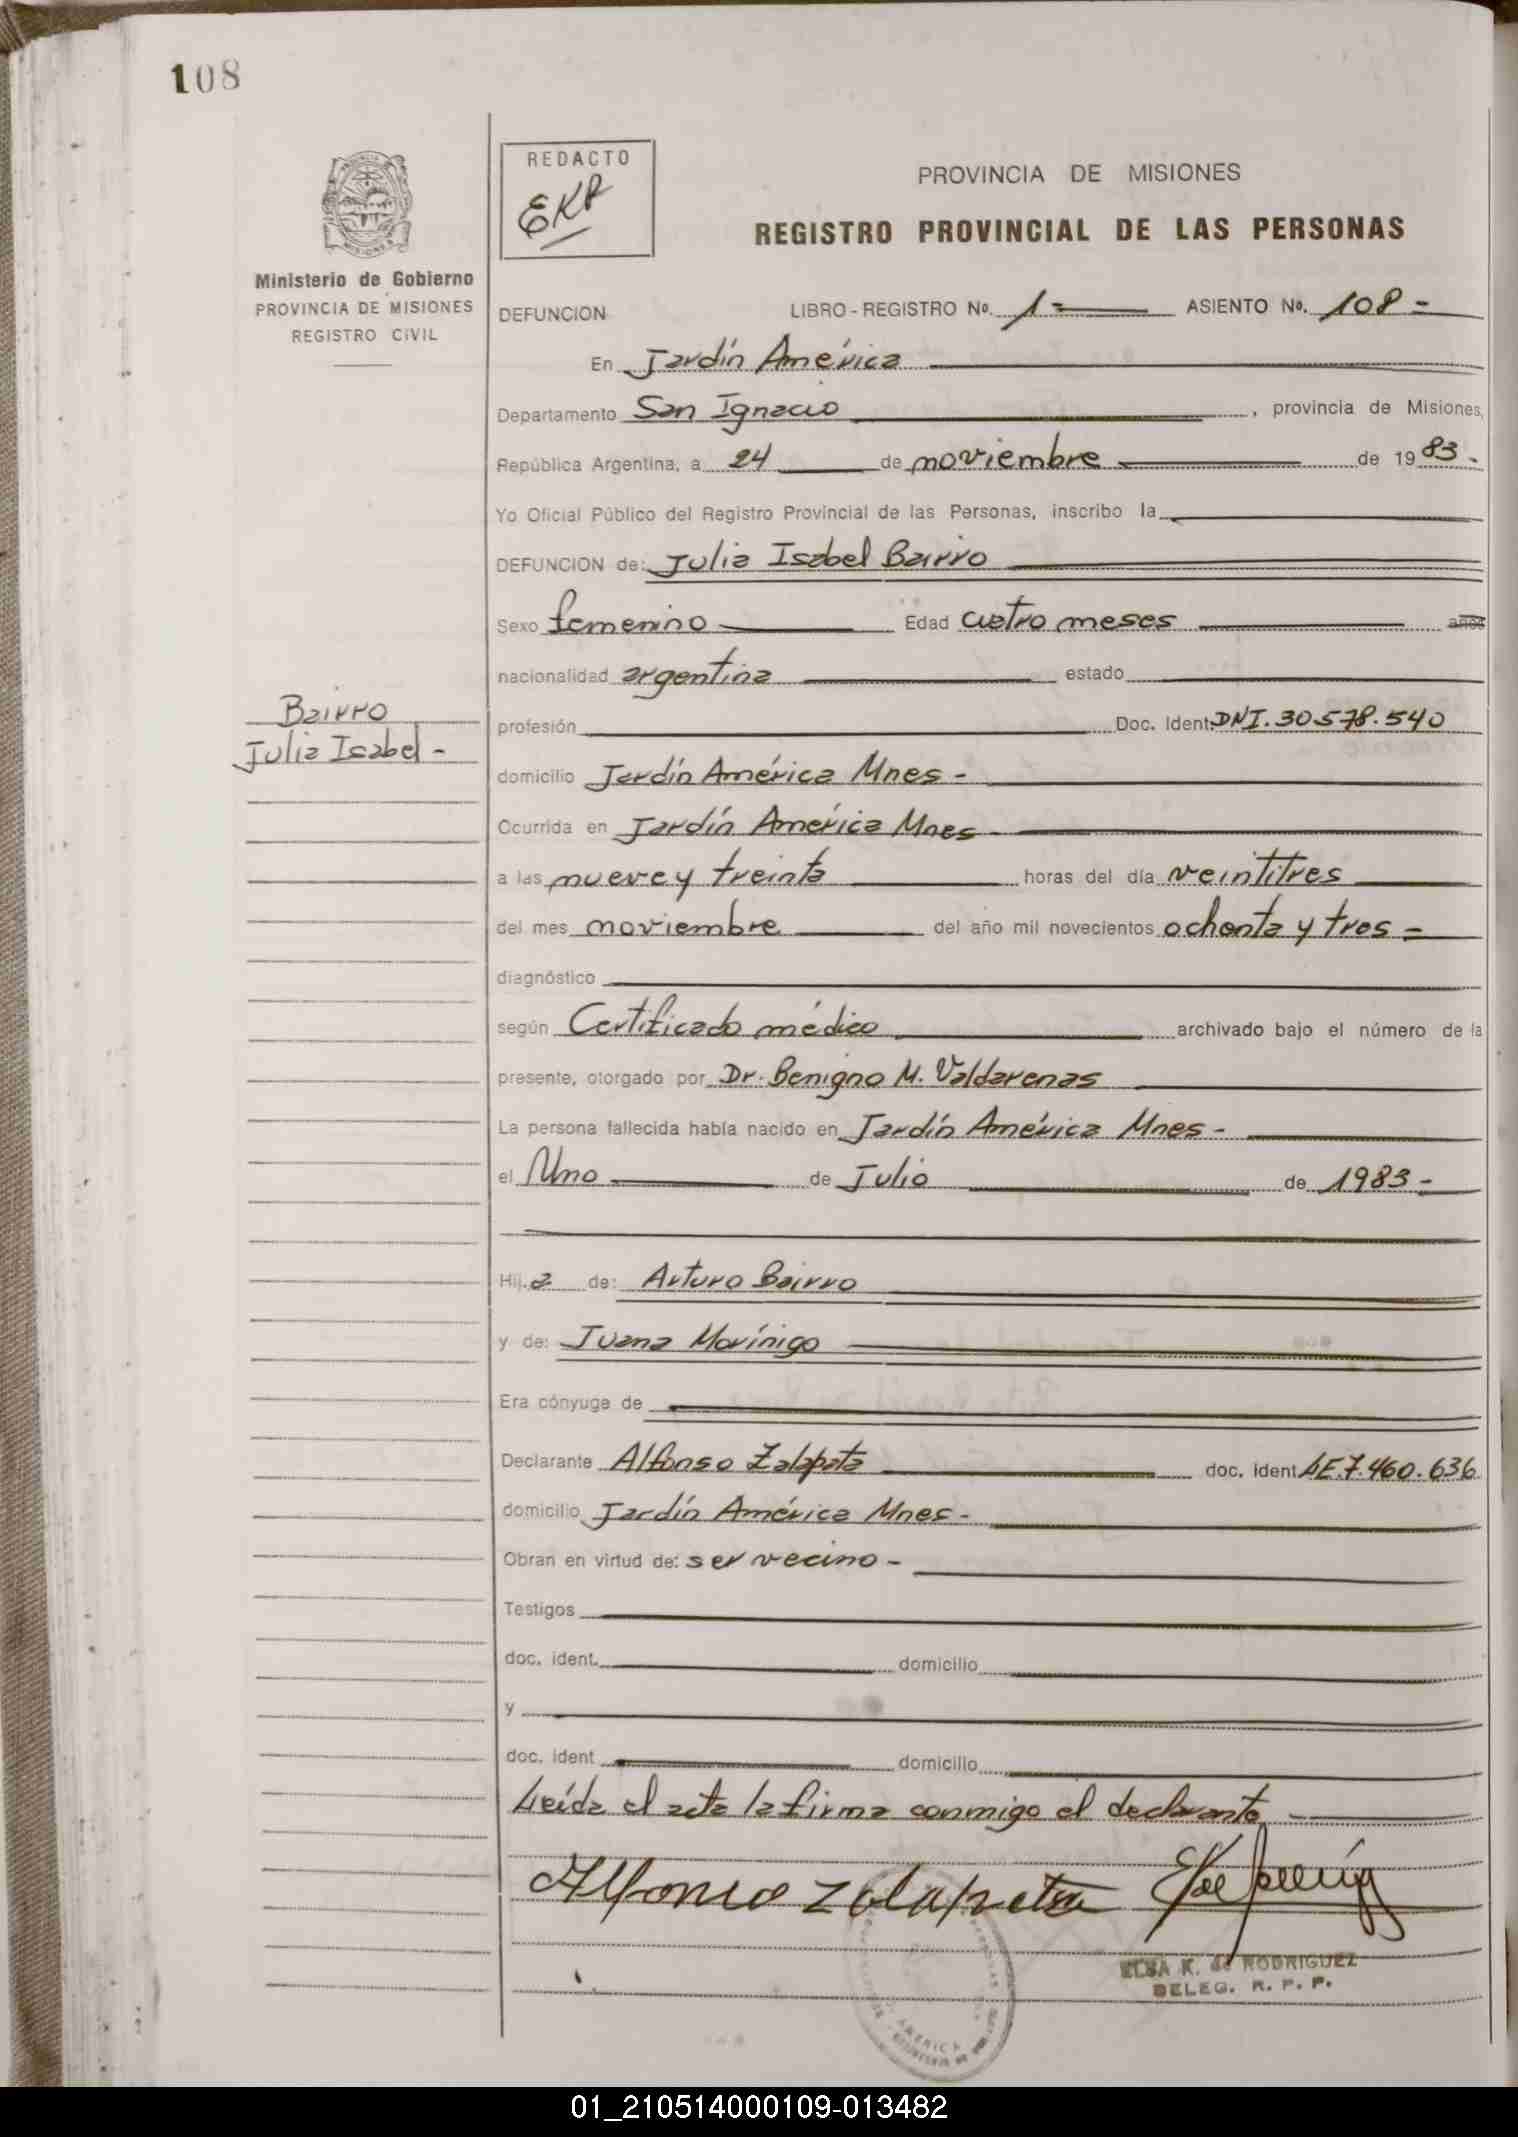 108
REDACTO
EKR
Ministerio de Gobierno
PROVINCIA DE MISIONES
REGISTRO CIVIL
PROVINCIA DE MISIONES
REGISTRO PROVINCIAL DE LAS PERSONAS
DEFUNCION LIBRO - REGISTRO Nº. 1- ASIENTO Nº. 108-
En Jardín América
Departamento San Ignacio, provincia de Misiones,
República Argentina, a 24 de noviembre de 1983-
Yo Oficial Público del Registro Provincial de las Personas, inscribo la
DEFUNCION de: Julia Isabel Bairro
Sexo femenino Edad cuatro meses años
nacionalidad argentina estado
Bairro
Julia Isabel -
profesión Doc. Ident. DNI. 30.578.540
domicilio Jardín América Mnes -
Ocurrida en Jardín América Mnes -
a las nueve y treinta horas del día veintitres
del mes noviembre del año mil novecientos ochenta y tres -
diagnóstico
según Certificado médico archivado bajo el número de la
presente, otorgado por Dr. Benigno M. Valdarenas
La persona fallecida había nacido en Jardín América Mnes -
el Uno de Julio de 1983 -
Hij.a de: Arturo Bairro
y de: Juana Morínigo
Era cónyuge de
Declarante Alfonso Zalapata doc. ident LE.7.460.636
domicilio Jardín América Mnes -
Obran en virtud de: ser vecino -
Testigos
doc. ident. domicilio
y
doc. ident domicilio
Leída el acta la firma conmigo el declarante
Alfonso
ELSA K. de RODRIGUEZ
DELEG. R. P. P.
AMERICA
01_210514000109-013482